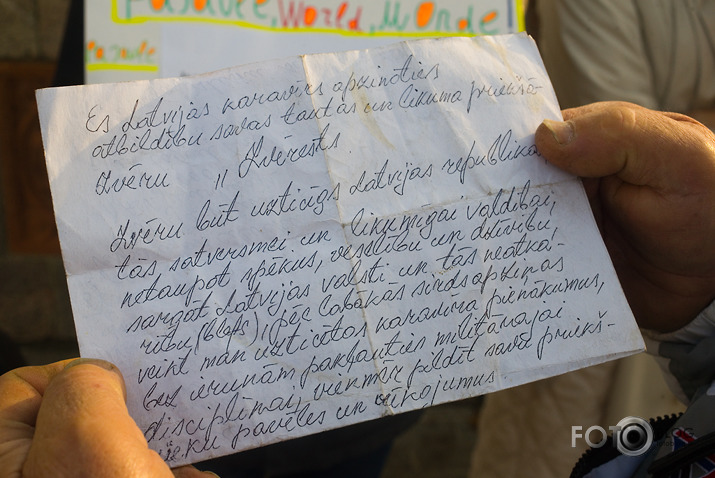 Pasaule, World, Monde
Pasaule
Es Latvijas karavīrs apzinoties
atbildību savas tautas un likuma priekšā-
zvēru " Zvērests
Zvēru būt uzticīgs Latvijas republikai,
tās satversmei un likumīgai valdībai,
netaupot spēkus, veselību un dzīvību,
sargāt Latvijas valsti un tās neatka-
rību (blefs), pēc labākās sirdsapziņas
veikt man uzticētos karavīra pienākumus,
bez ierunām pakļauties militārajai
disciplīnai, vienmēr pildīt savu priekš-
nieku pavēles un rīkojumus.
FOTO